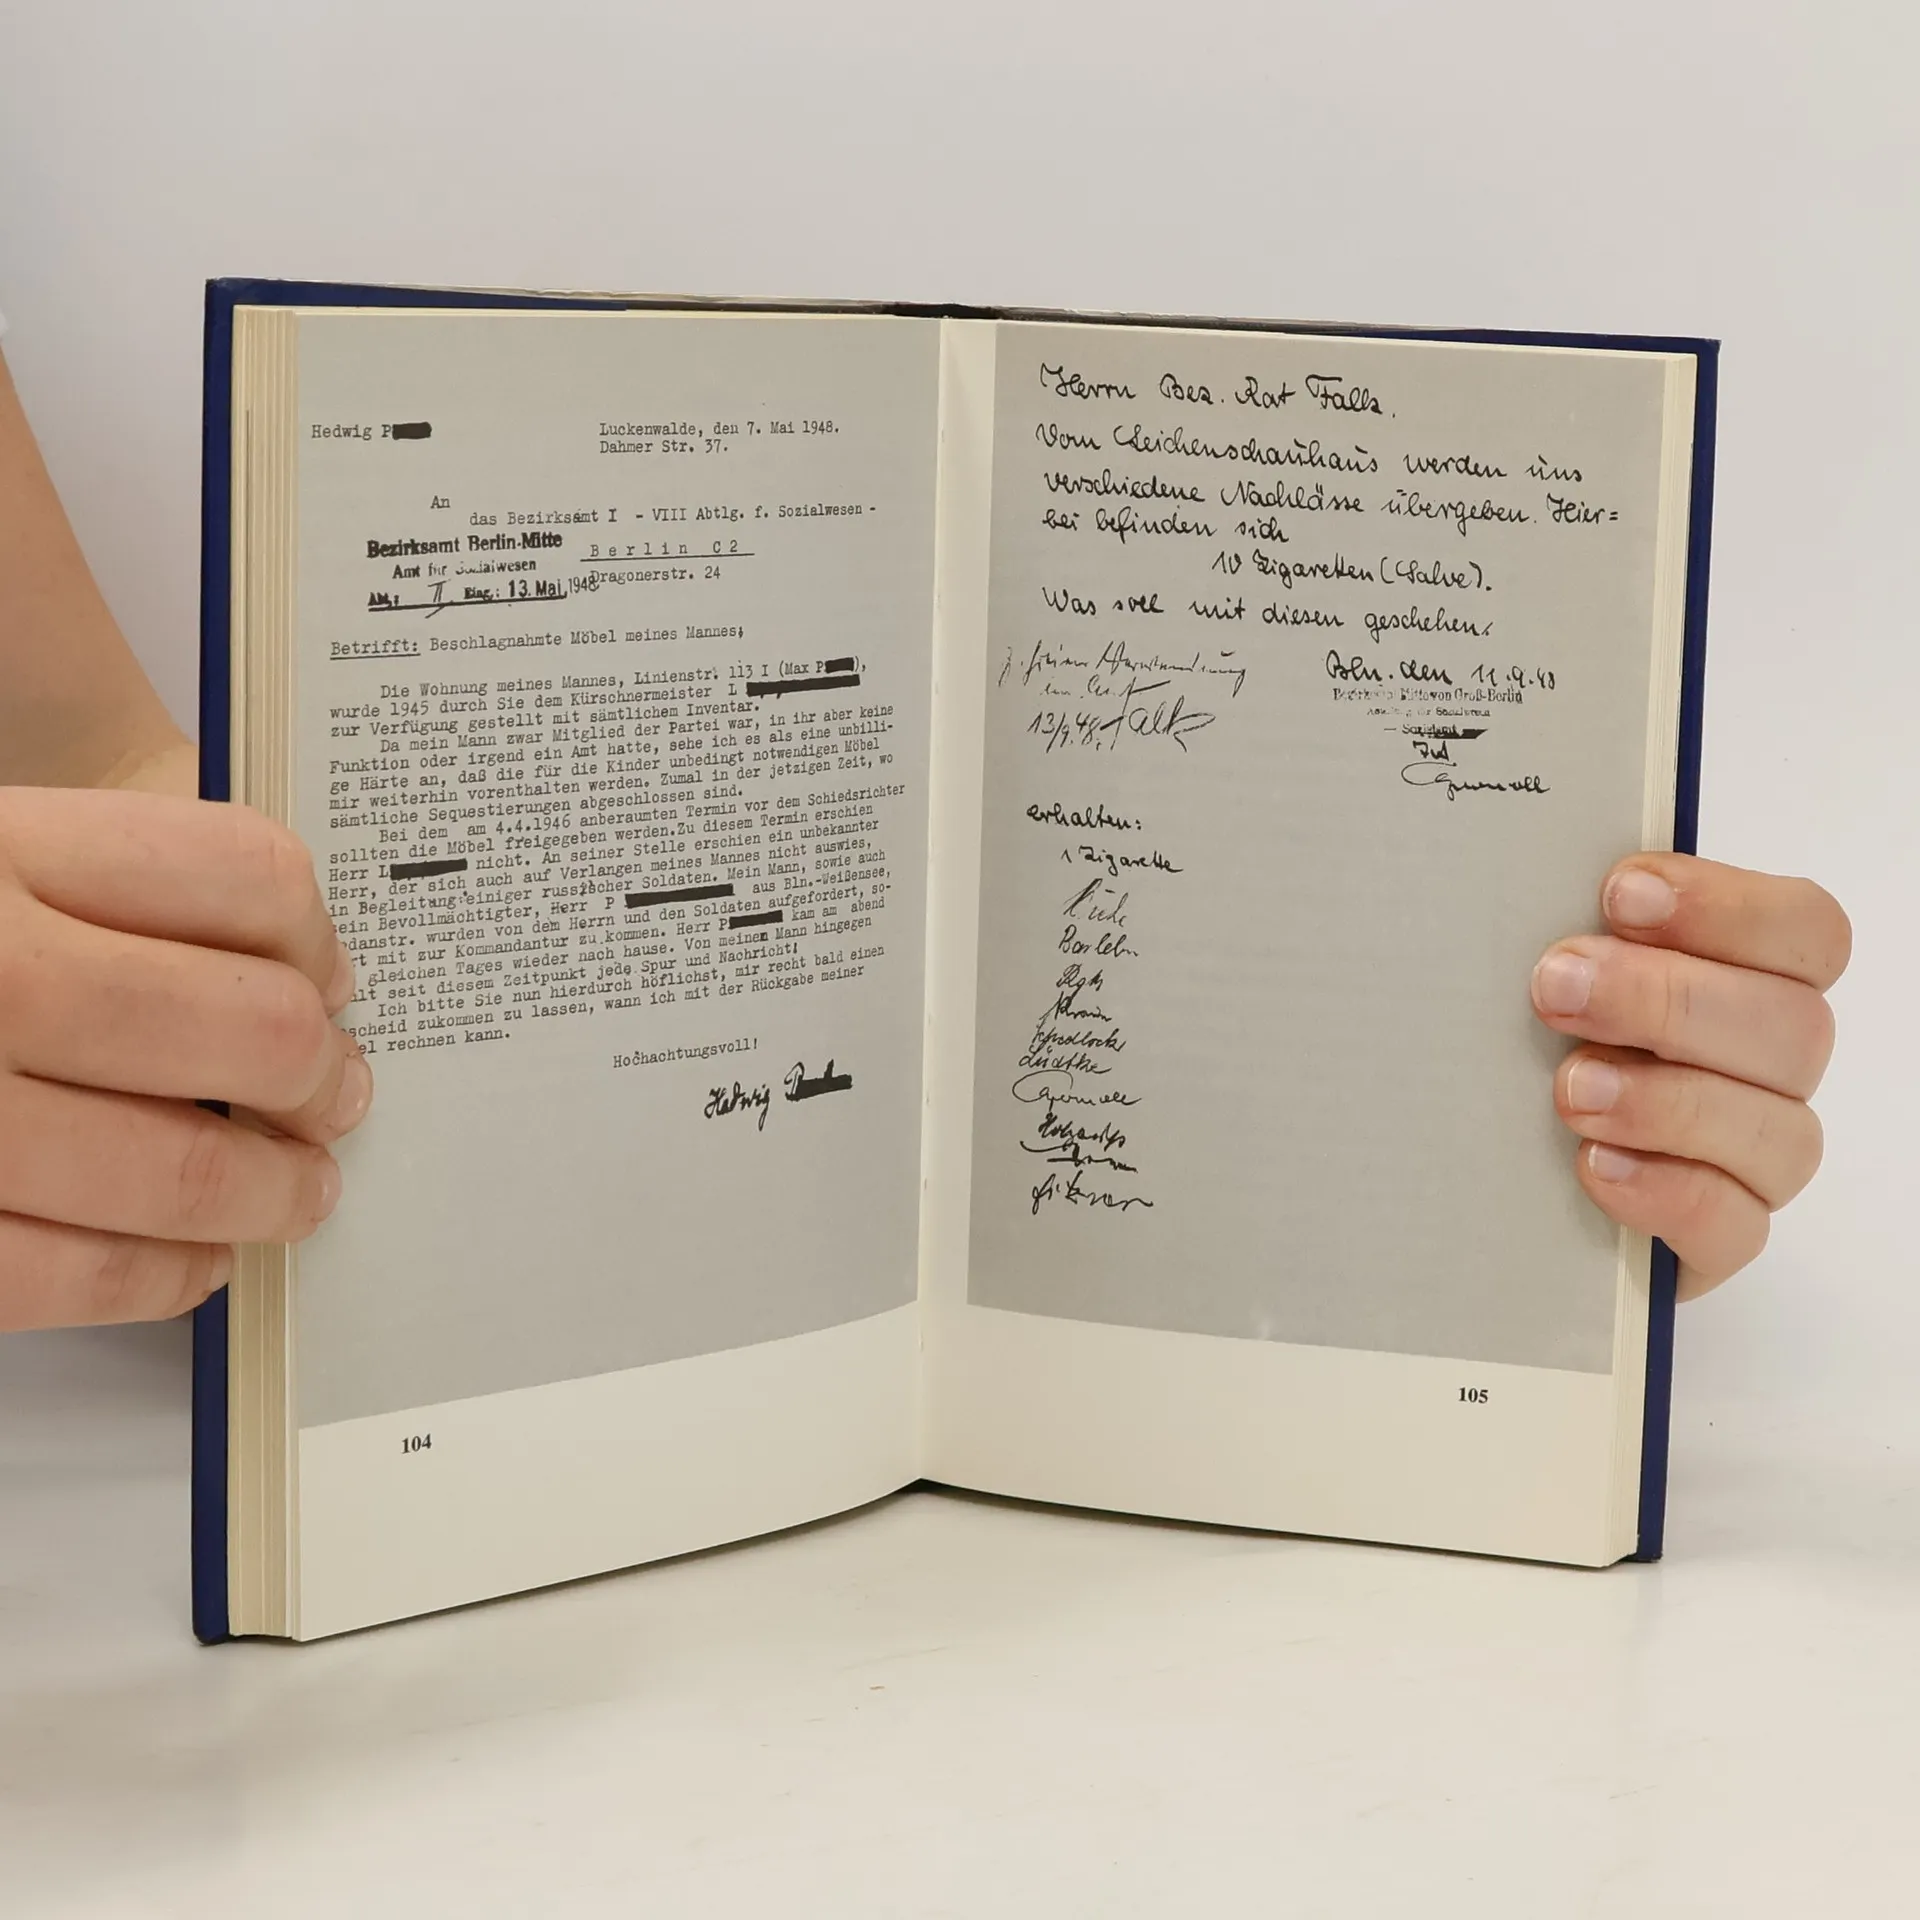 Hedwig P
Luckenwalde, den 7. Mai 1948.
Dahmer Str. 37.
An
das Bezirksamt I - VIII Abtlg. f. Sozialwesen -
Bezirksamt Berlin-Mitte
Berlin C2
Amt für Sozialwesen
Dragonerstr. 24
Abt.: II Eing.: 13. Mai 1948
Betrifft: Beschlagnahmte Möbel meines Mannes;
Die Wohnung meines Mannes, Linienstr. 113 I (Max P ),
wurde 1945 durch Sie dem Kürschnermeister L
zur Verfügung gestellt mit sämtlichem Inventar.
Da mein Mann zwar Mitglied der Partei war, in ihr aber keine
Funktion oder irgend ein Amt hatte, sehe ich es als eine unbilli-
ge Härte an, daß die für die Kinder unbedingt notwendigen Möbel
mir weiterhin vorenthalten werden. Zumal in der jetzigen Zeit, wo
sämtliche Sequestierungen abgeschlossen sind.
Bei dem am 4.4.1946 anberaumten Termin vor dem Schiedsrichter
sollten die Möbel freigegeben werden.Zu diesem Termin erschien
Herr L nicht. An seiner Stelle erschien ein unbekannter
Herr, der sich auch auf Verlangen meines Mannes nicht auswies,
in Begleitung einiger russischer Soldaten. Mein Mann, sowie auch
sein Bevollmächtigter, Herr P aus Bln.-Weißensee,
danstr. wurden von dem Herrn und den Soldaten aufgefordert, so-
rt mit zur Kommandantur zu kommen. Herr P kam am abend
gleichen Tages wieder nach hause. Von meinem Mann hingegen
alt seit diesem Zeitpunkt jede Spur und Nachricht!
Ich bitte Sie nun hierdurch höflichst, mir recht bald einen
scheid zukommen zu lassen, wann ich mit der Rückgabe meiner
el rechnen kann.
Hochachtungsvoll!
Hedwig P
104
Herrn Bez. Rat Falk.
Vom Leichenschauhaus werden uns
verschiedene Nachlässe übergeben. Hier=
bei befinden sich
10 Zigaretten (Salve).
Was soll mit diesen geschehen.
Bln. den 11.9.48
Bezirksamt Mitte von Groß-Berlin
13/9.48. Falk
Sozialamt
erhalten:
1 Zigarette
Lüdtke
105